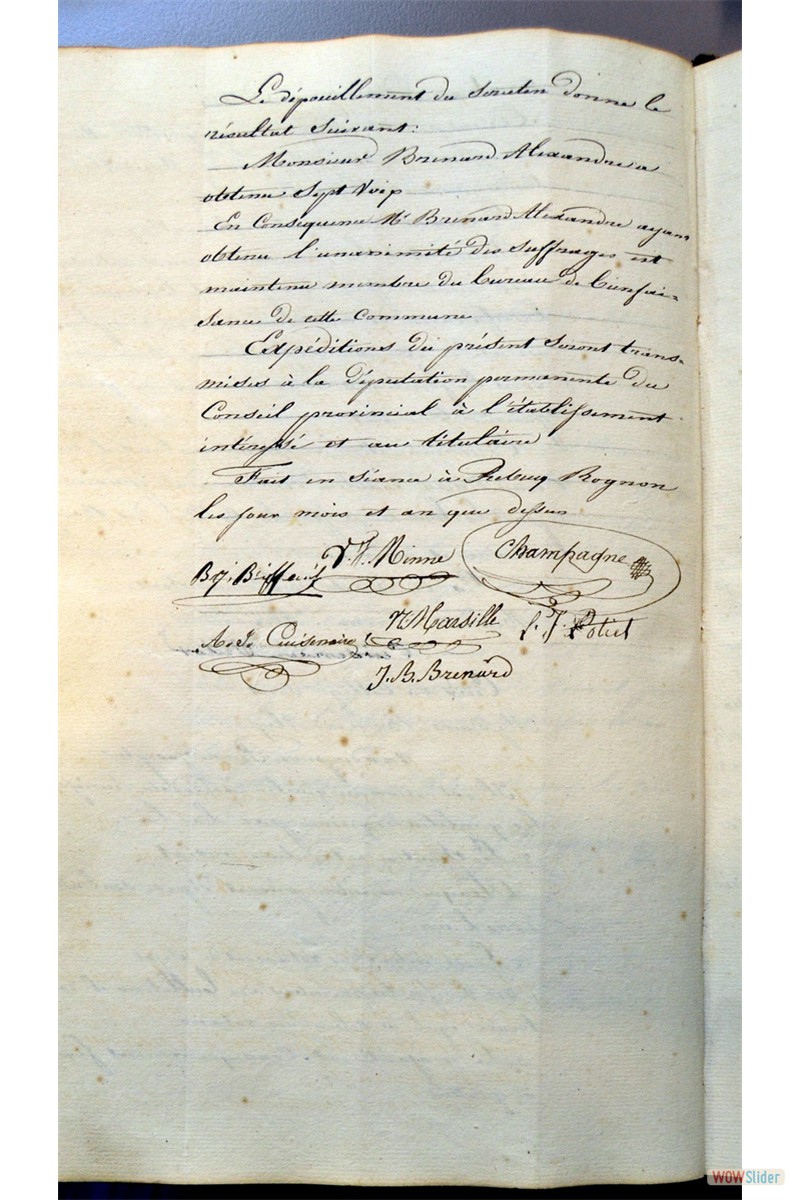 Le dépouillement du scrutin donne le
résultat suivant:
Monsieur Brenard Alexandre a
obtenu Sept Voix
En Conséquence Mr Brenard Alexandre ayant
obtenu l'unanimité des suffrages est
maintenu membre du bureau de bienfai-
sance de cette Commune
Expéditions du présent seront trans-
mises à la députation permanente du
Conseil provincial à l'établissement
intéressé et au titulaire
Fait en séance à Rebecq Rognon
les jour mois et an que dessus
V. J. Minne
Champagne
N Marsille
A. J. Cuisenaire
J. B. Brenard
WOWSlider